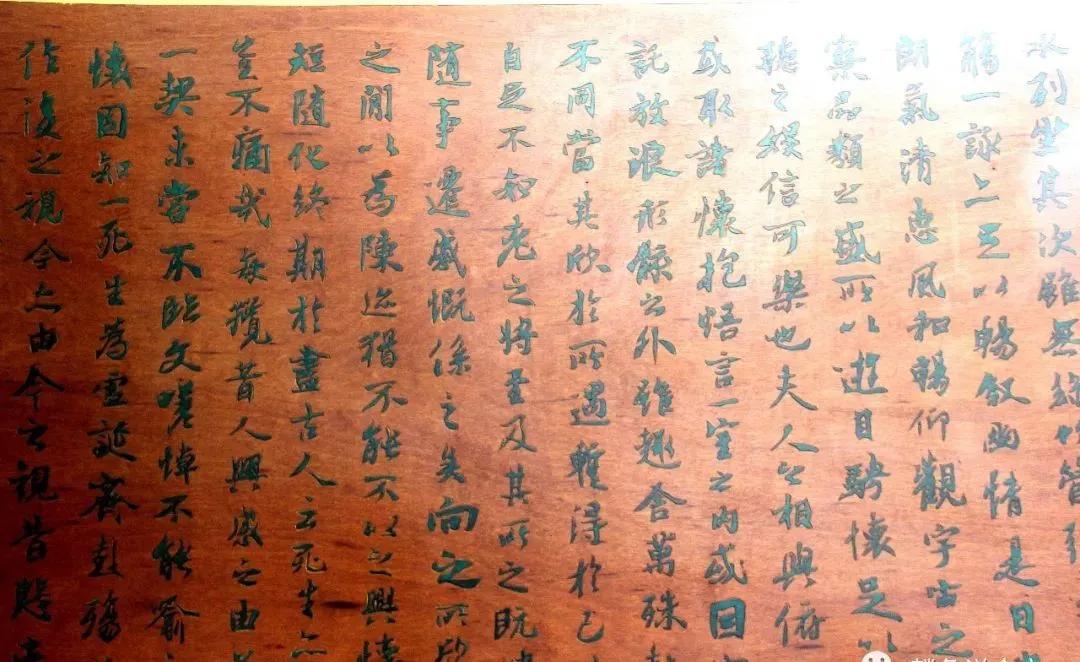 水列坐其次雖無絲竹管弦
觴一詠亦足以暢敘幽情是日
朗氣清惠風和暢仰觀宇宙之
察品類之盛所以遊目騁懷足以
聽之娛信可樂也夫人之相與俯
或取諸懷抱悟言一室之內或因
託放浪形骸之外雖趣舍萬殊
不同當其欣於所遇暫得於己
自足不知老之將至及其所之既
隨事遷感慨係之矣向之所欣
之閒以為陳迹猶不能不以之興懷
短隨化終期於盡古人云死生亦
豈不痛哉每攬昔人興感之由
一契未嘗不臨文嗟悼不能喻
懷固知一死生為虛誕齊彭殤
作後之視今亦由今之視昔悲